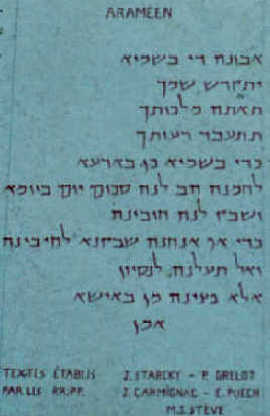 ARAMÉEN
אבונה די בשמיא
יתקדש שמך
תאתה מלכותך
תתעבד רעותך
כדי בשמיא כן בארעא
לחמנה הב לנה סכום יום ביומא
ושבק לנה חובינה
כדי אף אנחנה שבקנא לחיבינה
ואל תעלנה לנסיון
אלא פצינה מן באישא
אמן
TEXTES ÉTABLIS J. STARCKY - P. GRELOT
PAR LES RR.PP. J. CARMIGNAC - E. PUECH
M.J. STÈVE